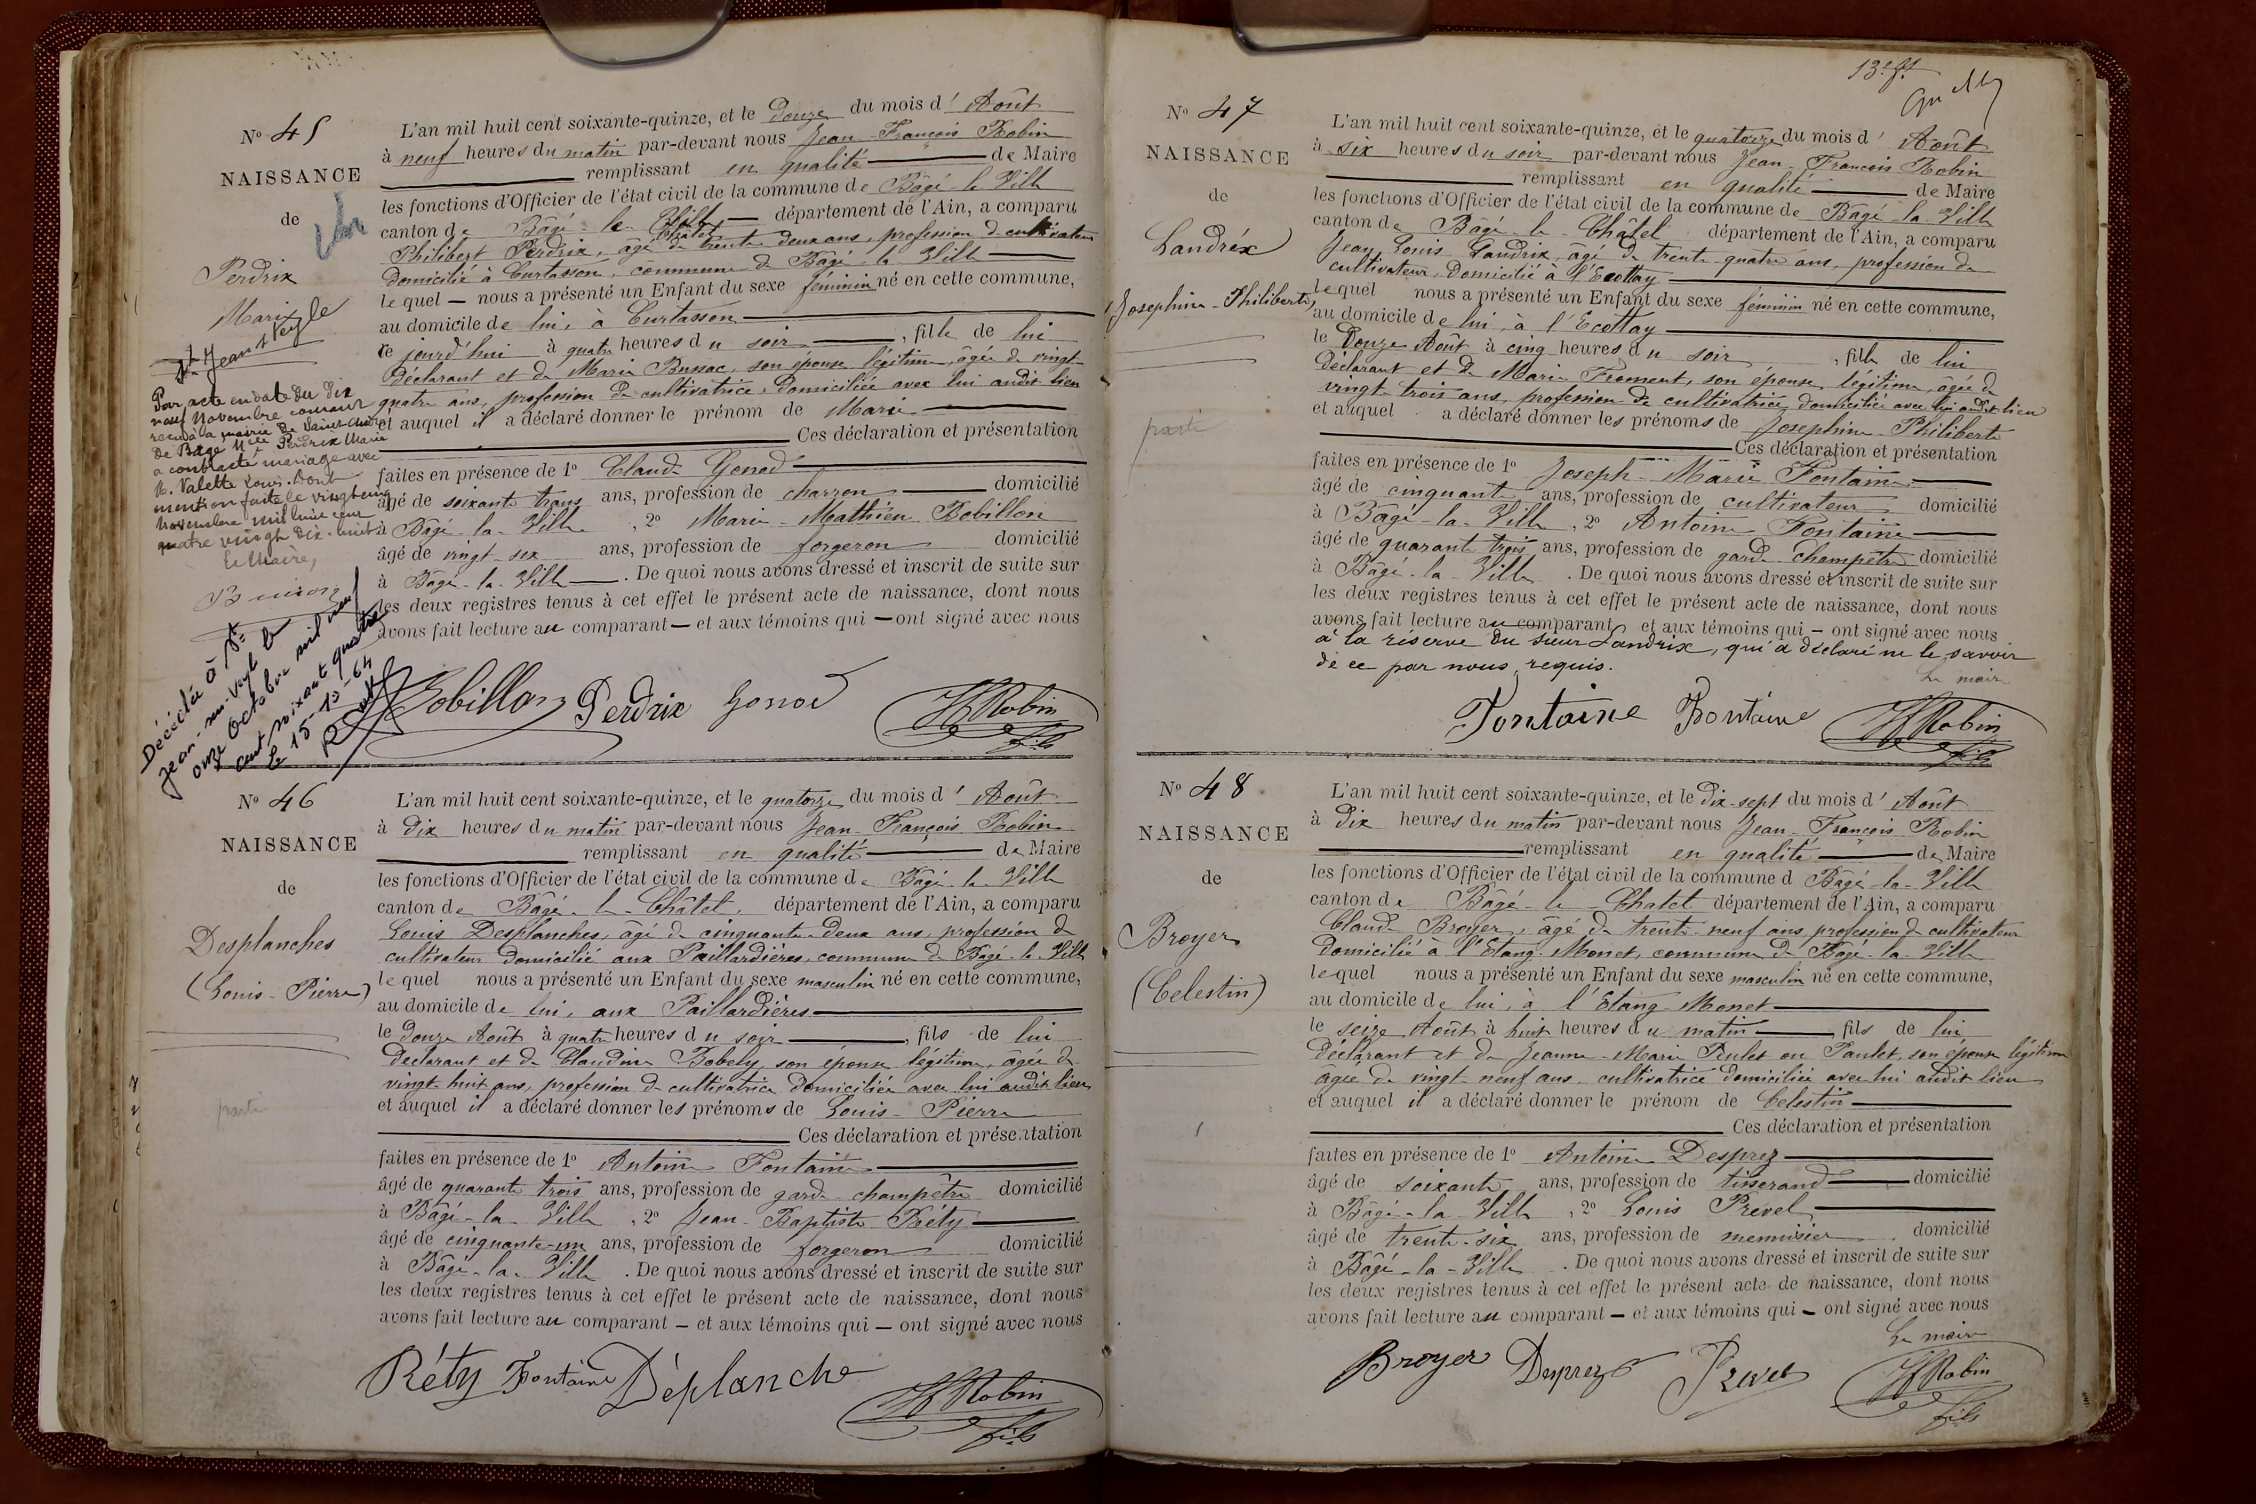 Nº 45
NAISSANCE
de
Perdrix
Marie
St Jean s/ Veyle
Par acte en date du dix
neuf Novembre courant
reçu à la mairie de Saint-André
de Bagé Melle Perdrix Marie
a contracté mariage avec
M. Valette Louis. Dont
mention faite le vingt-cinq
Novembre mil huit cent
quatre vingt dix-huit
Le Maire,
Décédée à St
Jean-sur-Veyle le
onze Octobre mil neuf
cent soixante quatre
Le 15-10-64
L'an mil huit cent soixante-quinze, et le douze du mois d' Août
à neuf heures du matin par-devant nous Jean-François Robin
remplissant en qualité de Maire
les fonctions d'Officier de l'état civil de la commune de Bâgé-la-Ville
canton de Bâgé-le-Châtel département de l'Ain, a comparu
Philibert Perdrix, âgé de trente deux ans, profession de cultivateur
domicilié à Curtasson, commune de Bâgé-la-Ville
lequel nous a présenté un Enfant du sexe féminin né en cette commune,
au domicile de lui, à Curtasson
ce jourd'hui à quatre heures du soir, fille de lui
déclarant et de Marie Bussac, son épouse légitime, âgée de vingt
quatre ans, profession de cultivatrice, domiciliée avec lui audit lieu
et auquel il a déclaré donner le prénom de Marie
Ces déclaration et présentation
faites en présence de 1º Claude Gonod
âgé de soixante trois ans, profession de charron domicilié
à Bâgé-la-Ville, 2º Marie-Mathieu Bobillon
âgé de vingt-six ans, profession de forgeron domicilié
à Bâgé-la-Ville. De quoi nous avons dressé et inscrit de suite sur
les deux registres tenus à cet effet le présent acte de naissance, dont nous
avons fait lecture au comparant et aux témoins qui ont signé avec nous
Bobillon Perdrix Gonod JF Robin
fils
Nº 46
NAISSANCE
de
Desplanches
(Louis-Pierre)
parti
L'an mil huit cent soixante-quinze, et le quatorze du mois d' Août
à dix heures du matin par-devant nous Jean-François Robin
remplissant en qualité de Maire
les fonctions d'Officier de l'état civil de la commune de Bâgé-la-Ville
canton de Bâgé-le-Châtel, département de l'Ain, a comparu
Louis Desplanches, âgé de cinquante-deux ans, profession de
cultivateur domicilié aux Paillardières, commune de Bagé-la-Ville
lequel nous a présenté un Enfant du sexe masculin né en cette commune,
au domicile de lui, aux Paillardières
le douze Août à quatre heures du soir, fils de lui
déclarant et de Claudine Bobely, son épouse légitime, âgée de
vingt-huit ans, profession de cultivatrice domiciliée avec lui audit lieu
et auquel il a déclaré donner les prénoms de Louis-Pierre
Ces déclaration et présentation
faites en présence de 1º Antoine Fontaine
âgé de quarante trois ans, profession de garde-champêtre domicilié
à Bâgé-la-Ville, 2º Jean-Baptiste Réty
âgé de cinquante-un ans, profession de forgeron domicilié
à Bâgé-la-Ville. De quoi nous avons dressé et inscrit de suite sur
les deux registres tenus à cet effet le présent acte de naissance, dont nous
avons fait lecture au comparant et aux témoins qui ont signé avec nous
Réty Fontaine Déplanche JF Robin
fils
13e ft
Nº 47
NAISSANCE
de
Landrix
Josephine-Philiberte
parti
L'an mil huit cent soixante-quinze, et le quatorze du mois d' Août
à six heures du soir par-devant nous Jean-François Robin
remplissant en qualité de Maire
les fonctions d'Officier de l'état civil de la commune de Bâgé-la-Ville
canton de Bâgé-le-Châtel département de l'Ain, a comparu
Jean-Louis Landrix, âgé de trente-quatre ans, profession de
cultivateur, domicilié à l'Ecottay
lequel nous a présenté un Enfant du sexe féminin né en cette commune,
au domicile de lui, à l'Ecottay
le Douze Août à cinq heures du soir, fille de lui
déclarant et de Marie Froment, son épouse légitime, âgée de
vingt-trois ans, profession de cultivatrice domiciliée avec lui audit lieu
et auquel a déclaré donner les prénoms de Josephine-Philiberte
Ces déclaration et présentation
faites en présence de 1º Joseph-Marie Fontaine
âgé de cinquante ans, profession de cultivateur domicilié
à Bâgé-la-Ville, 2º Antoine Fontaine
âgé de quarante trois ans, profession de garde-champêtre domicilié
à Bâgé-la-Ville. De quoi nous avons dressé et inscrit de suite sur
les deux registres tenus à cet effet le présent acte de naissance, dont nous
avons fait lecture au comparant et aux témoins qui ont signé avec nous
à la réserve du sieur Landrix, qui a déclaré ne le savoir
de ce par nous requis.
Le maire
Fontaine Fontaine JF Robin
fils
Nº 48
NAISSANCE
de
Broyer
(Celestin)
L'an mil huit cent soixante-quinze, et le dix-sept du mois d' Août
à dix heures du matin par-devant nous Jean-François Robin
remplissant en qualité de Maire
les fonctions d'Officier de l'état civil de la commune d Bâgé-la-Ville
canton de Bâgé-le-Chatel département de l'Ain, a comparu
Claude Broyer, âgé de trente-neuf ans, profession de cultivateur
domicilié à l'Etang-Monet, commune de Bâgé-la-Ville
lequel nous a présenté un Enfant du sexe masculin né en cette commune,
au domicile de lui, à l'Etang-Monet
le seize Août à huit heures du matin fils de lui
déclarant et de Jeanne-Marie Peulet ou Paulet, son épouse légitime
âgée de vingt-neuf ans cultivatrice domiciliée avec lui audit lieu
et auquel il a déclaré donner le prénom de Celestin
Ces déclaration et présentation
faites en présence de 1º Antoine Desprez
âgé de soixante ans, profession de tisserand domicilié
à Bâgé-la-Ville, 2º Louis Prevel
âgé de trente-six ans, profession de menuisier domicilié
à Bâgé-la-Ville. De quoi nous avons dressé et inscrit de suite sur
les deux registres tenus à cet effet le présent acte de naissance, dont nous
avons fait lecture au comparant et aux témoins qui ont signé avec nous
Le maire
Broyer Desprez Prevel JF Robin
fils